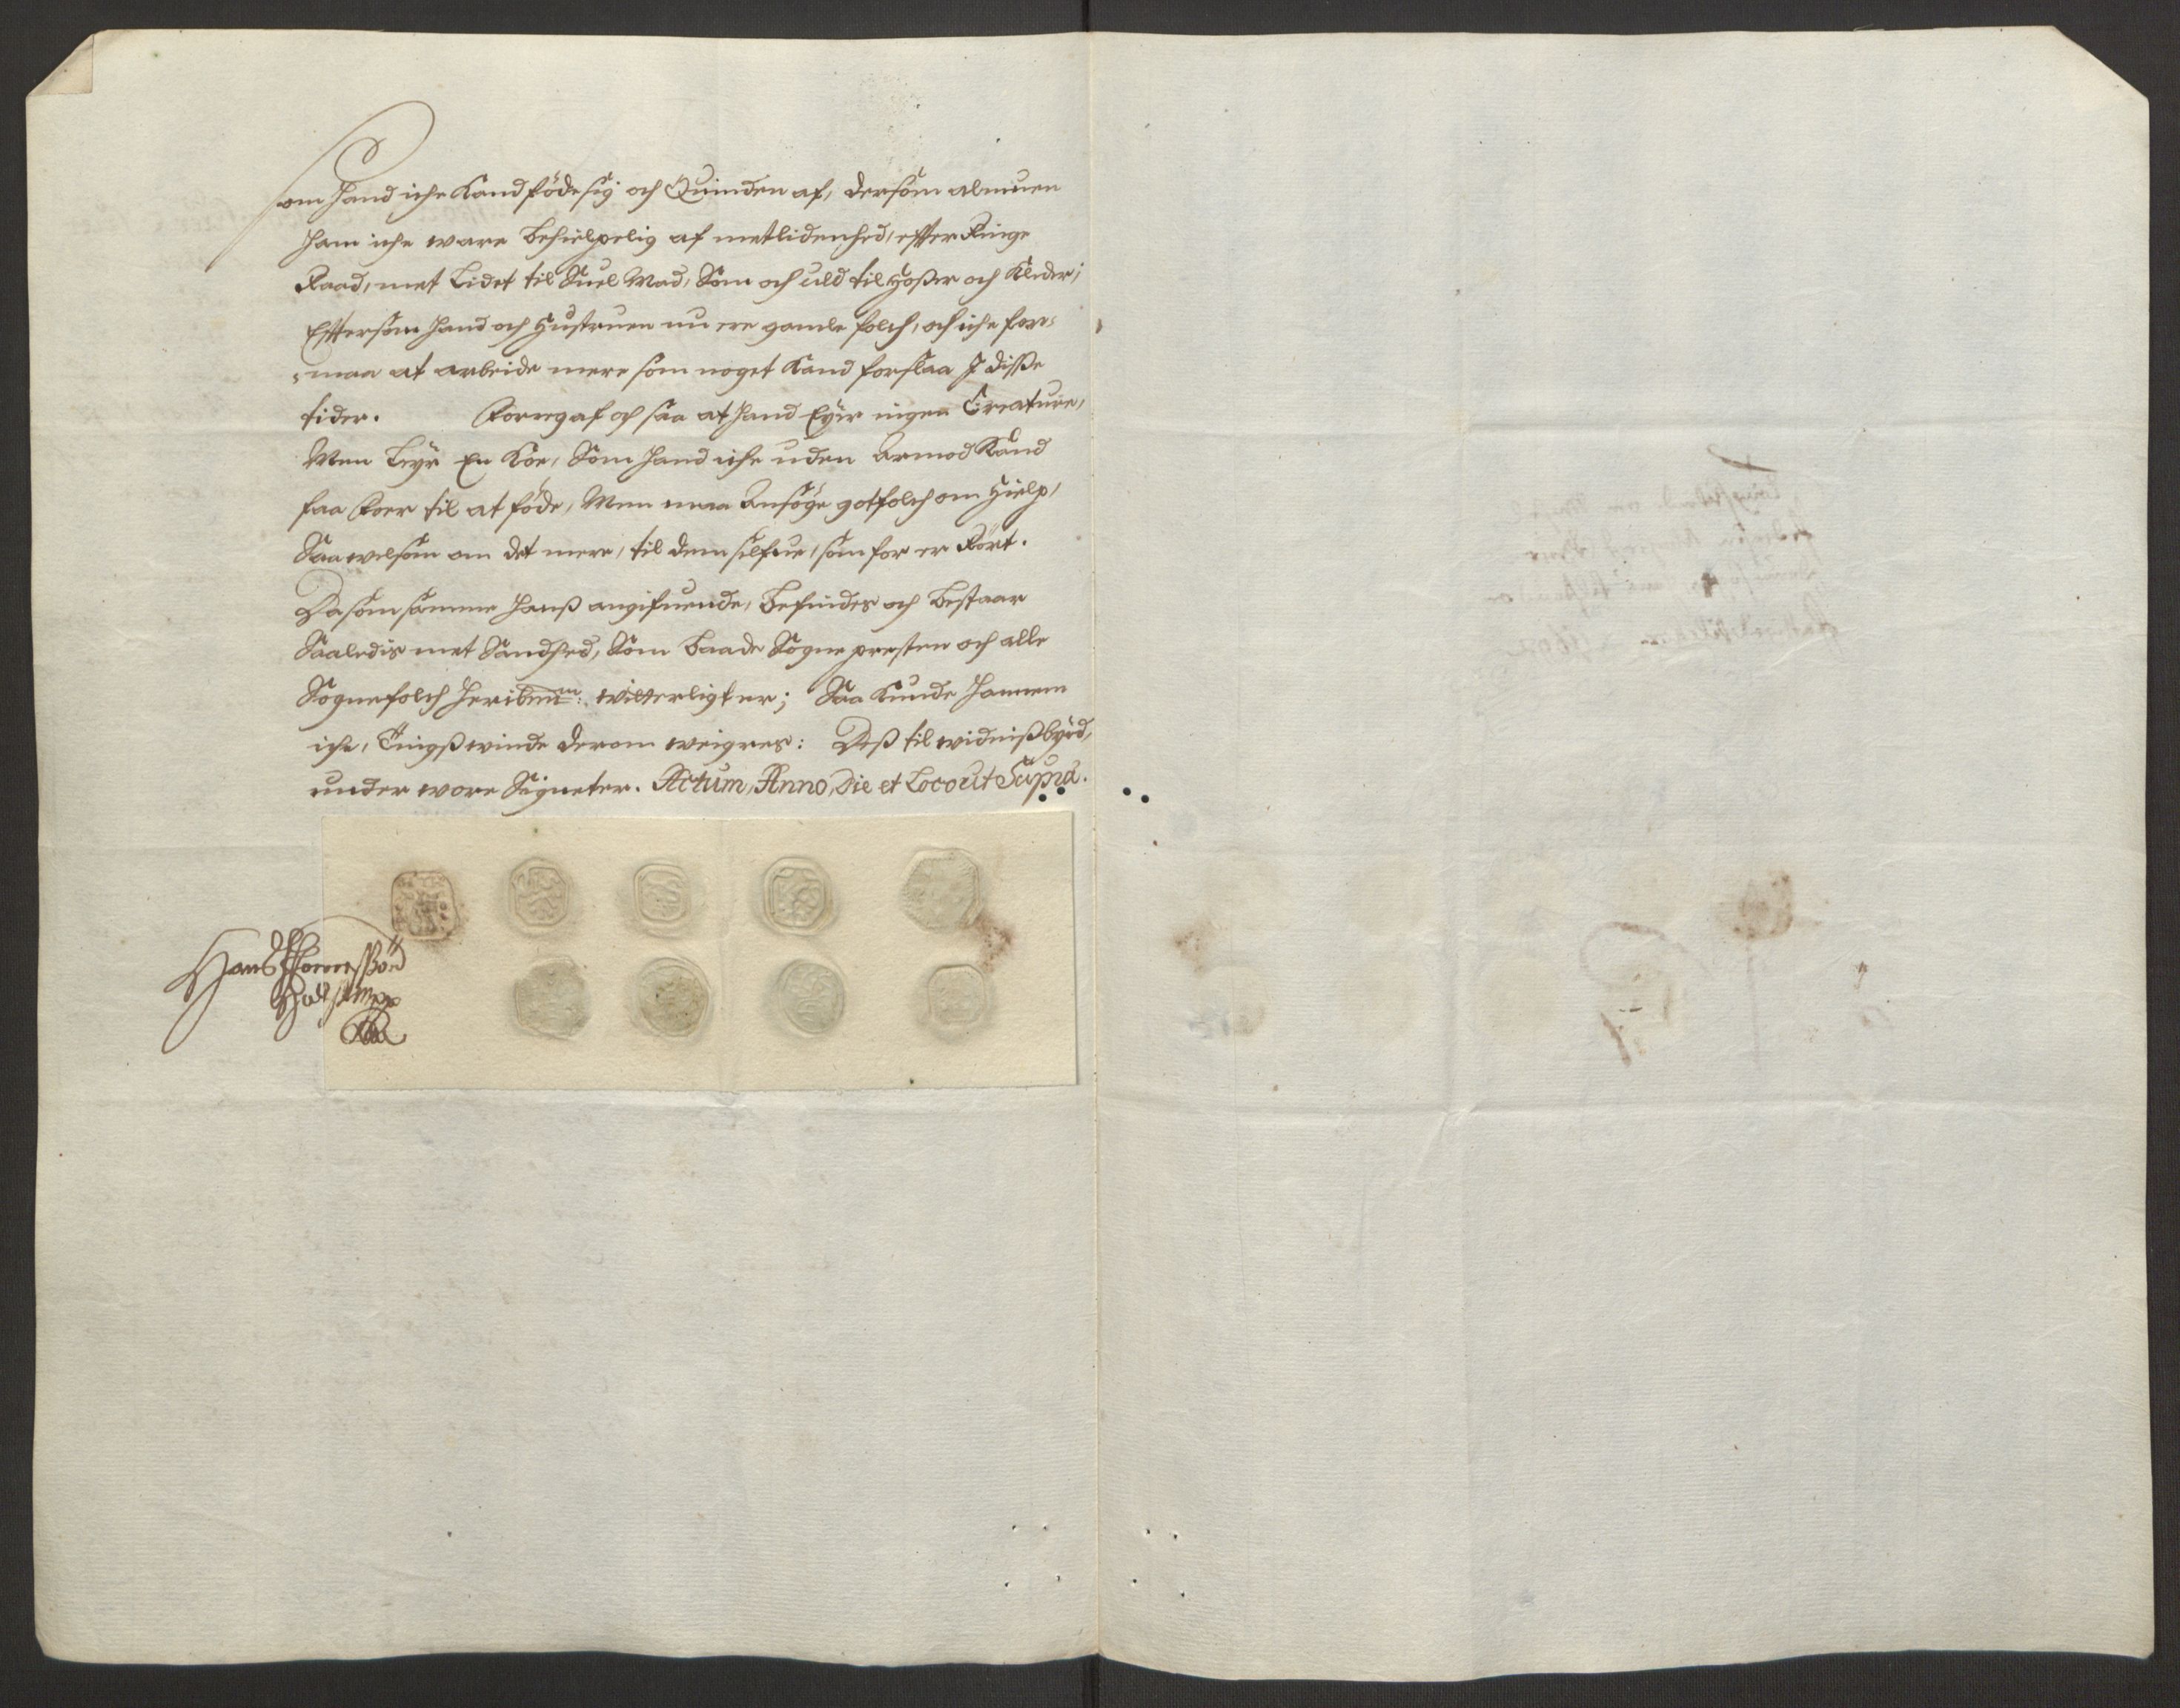 som hand iche Kand føde sig och Quinden af, dersom almuen
ham iche ware behielpelig af metlidenhed, effter Ringe
Raad, met Lidet til Suel Mad, Som och uld til Hoßer och Kleder;
Efftersom hand och Hustruen nu ere gamle folch, och iche for¬
¬maa at arbeide mere som noget Kand forslaa J disse
tider. Forregaf och saa at hand Eyer ingen Creature,
Men Leyr En Koe, Som hand iche uden Armod Kand
faa Foer til at føde, Men maa Ansøge gotfolch om Hielp,
Saa welsom om det mere, til dem selfue, som for er Rørt.
Da som samme hanß angifuende, befindes och bestaar
Saaledis met Sandhed, Som baade Sogne presten och alle
Sognefolch heri witterligt er; Saa Kunde hannem
iche, Tingßwinde derom weigres: Deß til widnißbyrd,
under wore Signeter. Actum, Anno, Die et Loco ut Supra.
Hans